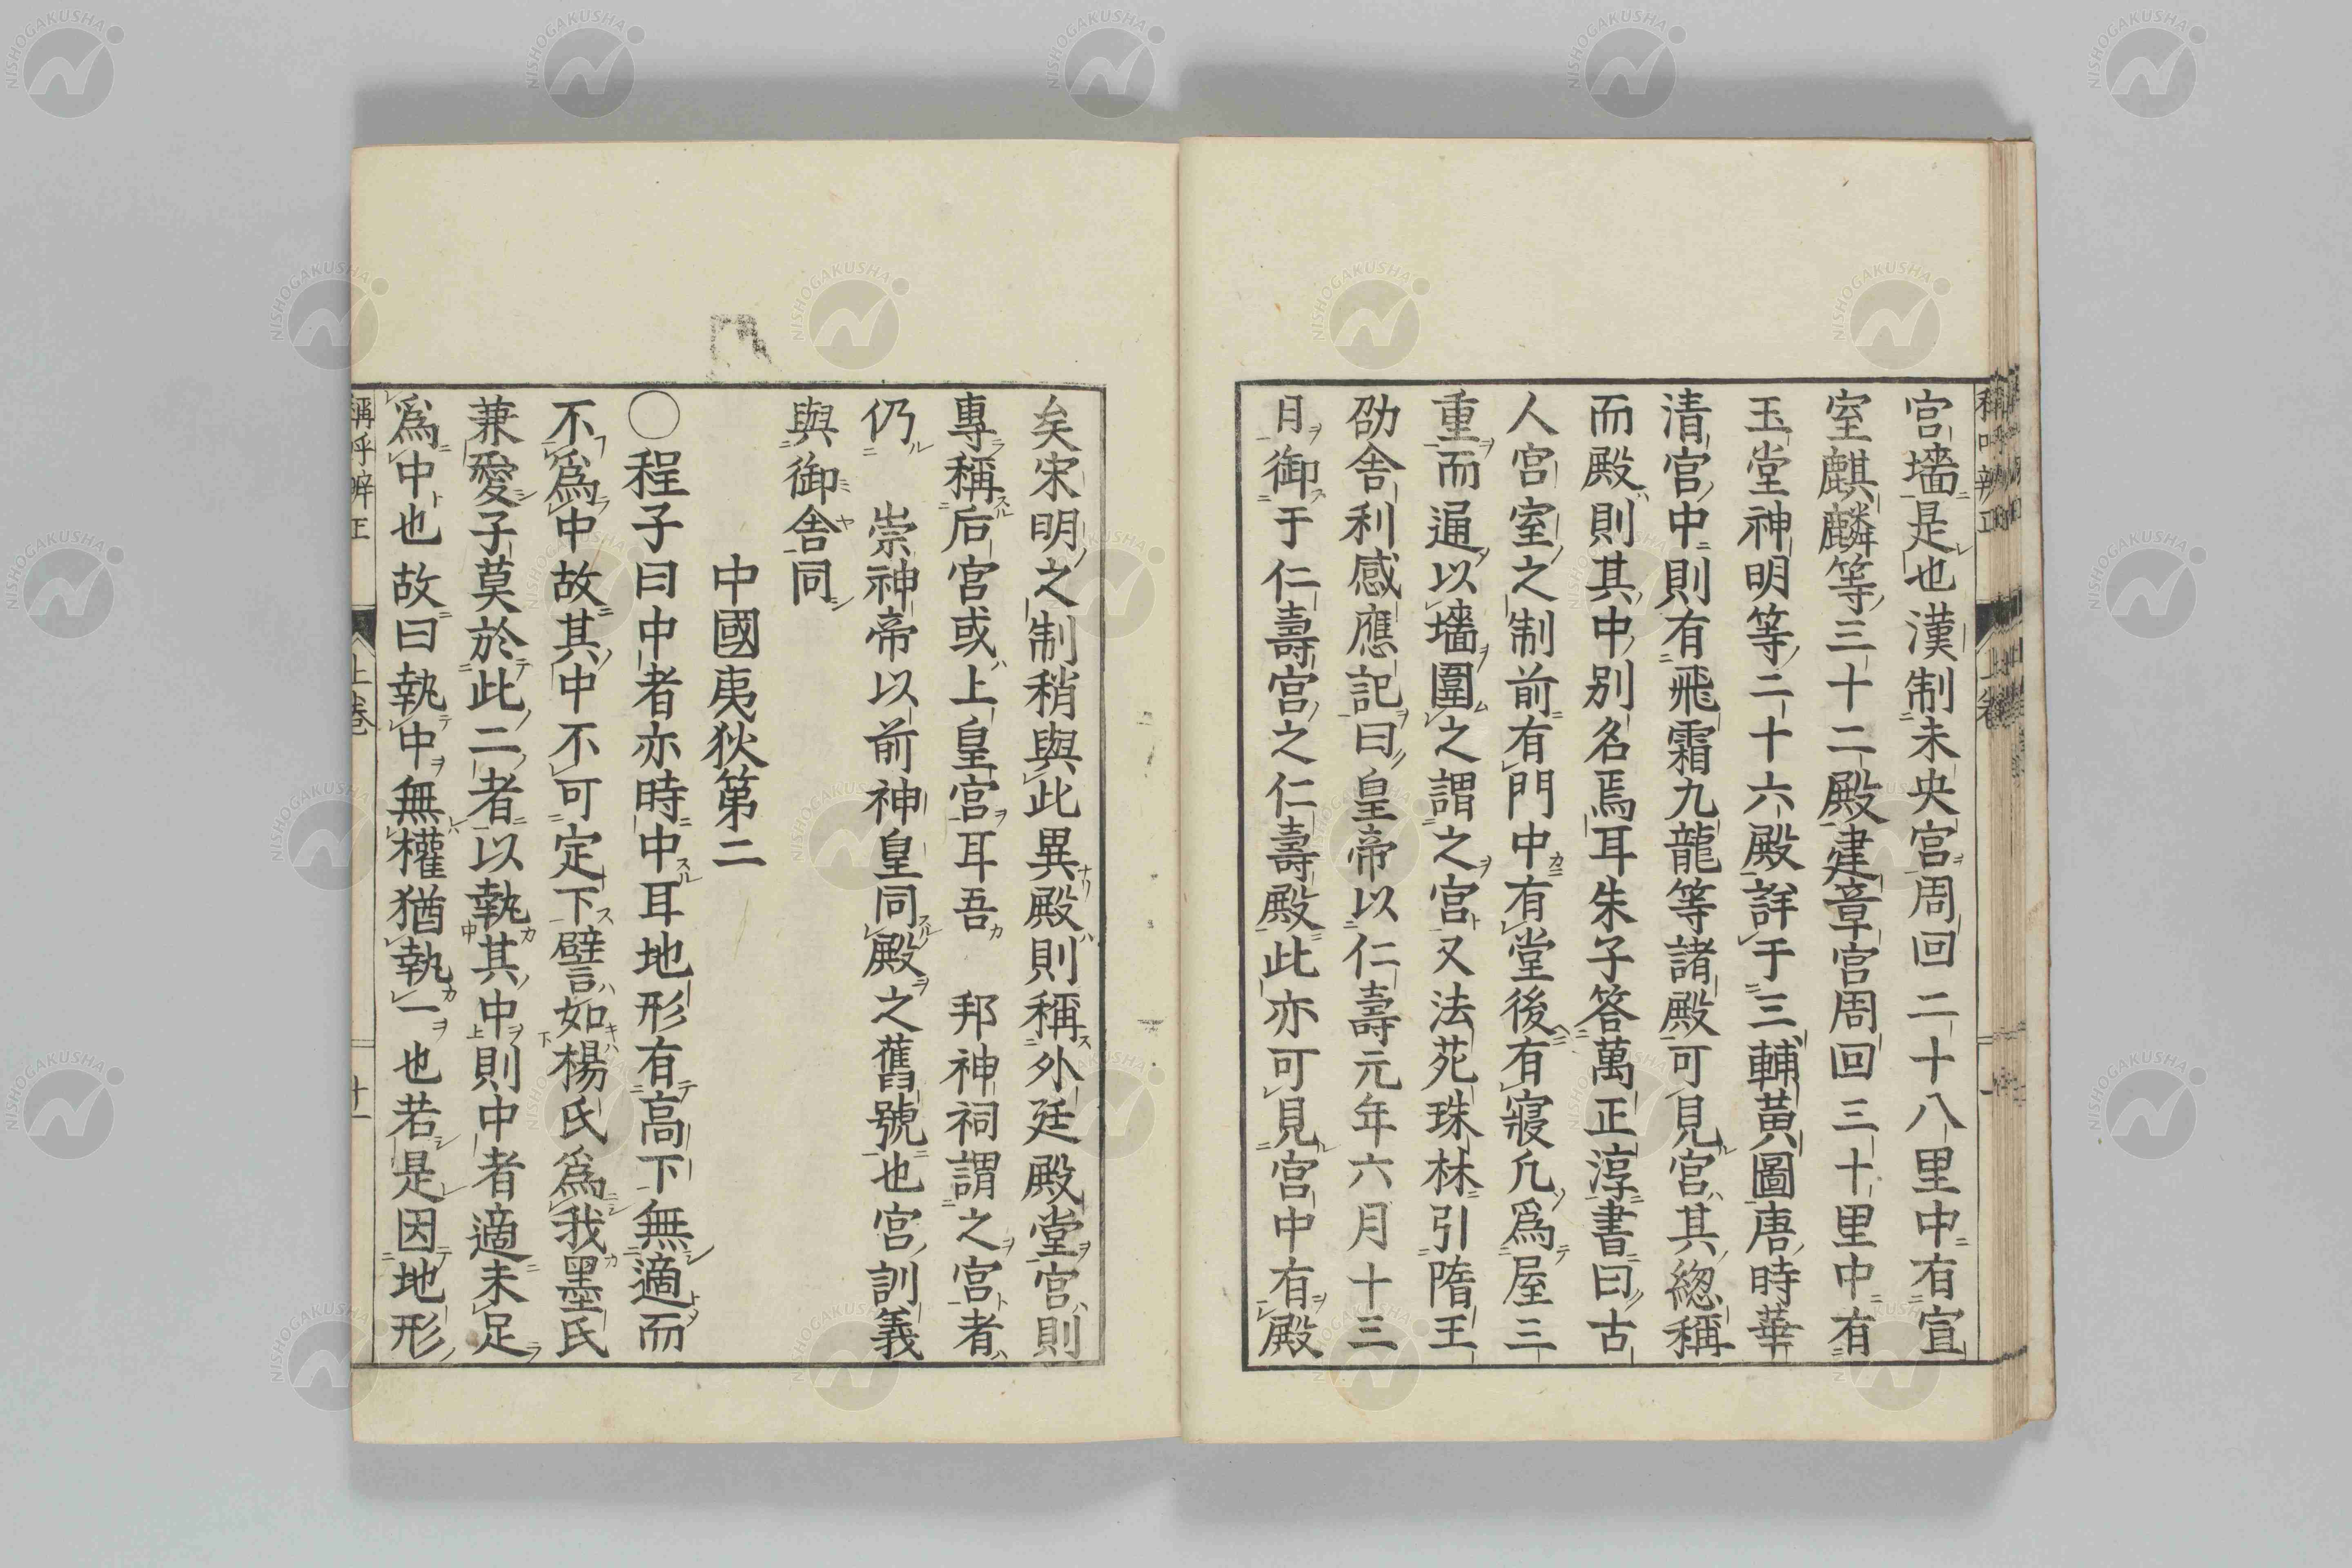 宮墻是也漢制未央宮周回二十八里中有宣
室麒麟等三十二殿建章宮周回三十里中有
玉堂神明等二十六殿詳于三輔黃圖唐時華
清宮中則有飛霜九龍等諸殿可見宮其總稱
而殿則其中別名焉耳朱子答萬正淳書曰古
人宮室之制前有門中有堂後有寢凡爲屋三
重而逼以墻圍之謂之宮又法苑珠林引隋王
劭舍利感應記曰皇帝以仁壽元年六月十三
日御于仁壽宮之仁壽殿此亦可見宮中有殿
矣宋明之制稍與此異殿則稱外廷殿堂宮則
專稱后宮或上皇宮耳吾 邦神祠謂之宮者
仍 崇神帝以前神皇同殿之舊號也宮訓義
與御舍同
中國夷狄第二
○程子曰中者亦時中耳地形有高下無適而
不爲中故其中不可定下譬如楊氏爲我墨氏
兼愛子莫於此二者以執其中則中者適未足
爲中也故曰執中無權猶執一也若是因地形
稱呼辨正 上卷 十一
NISHOGAKUSHA